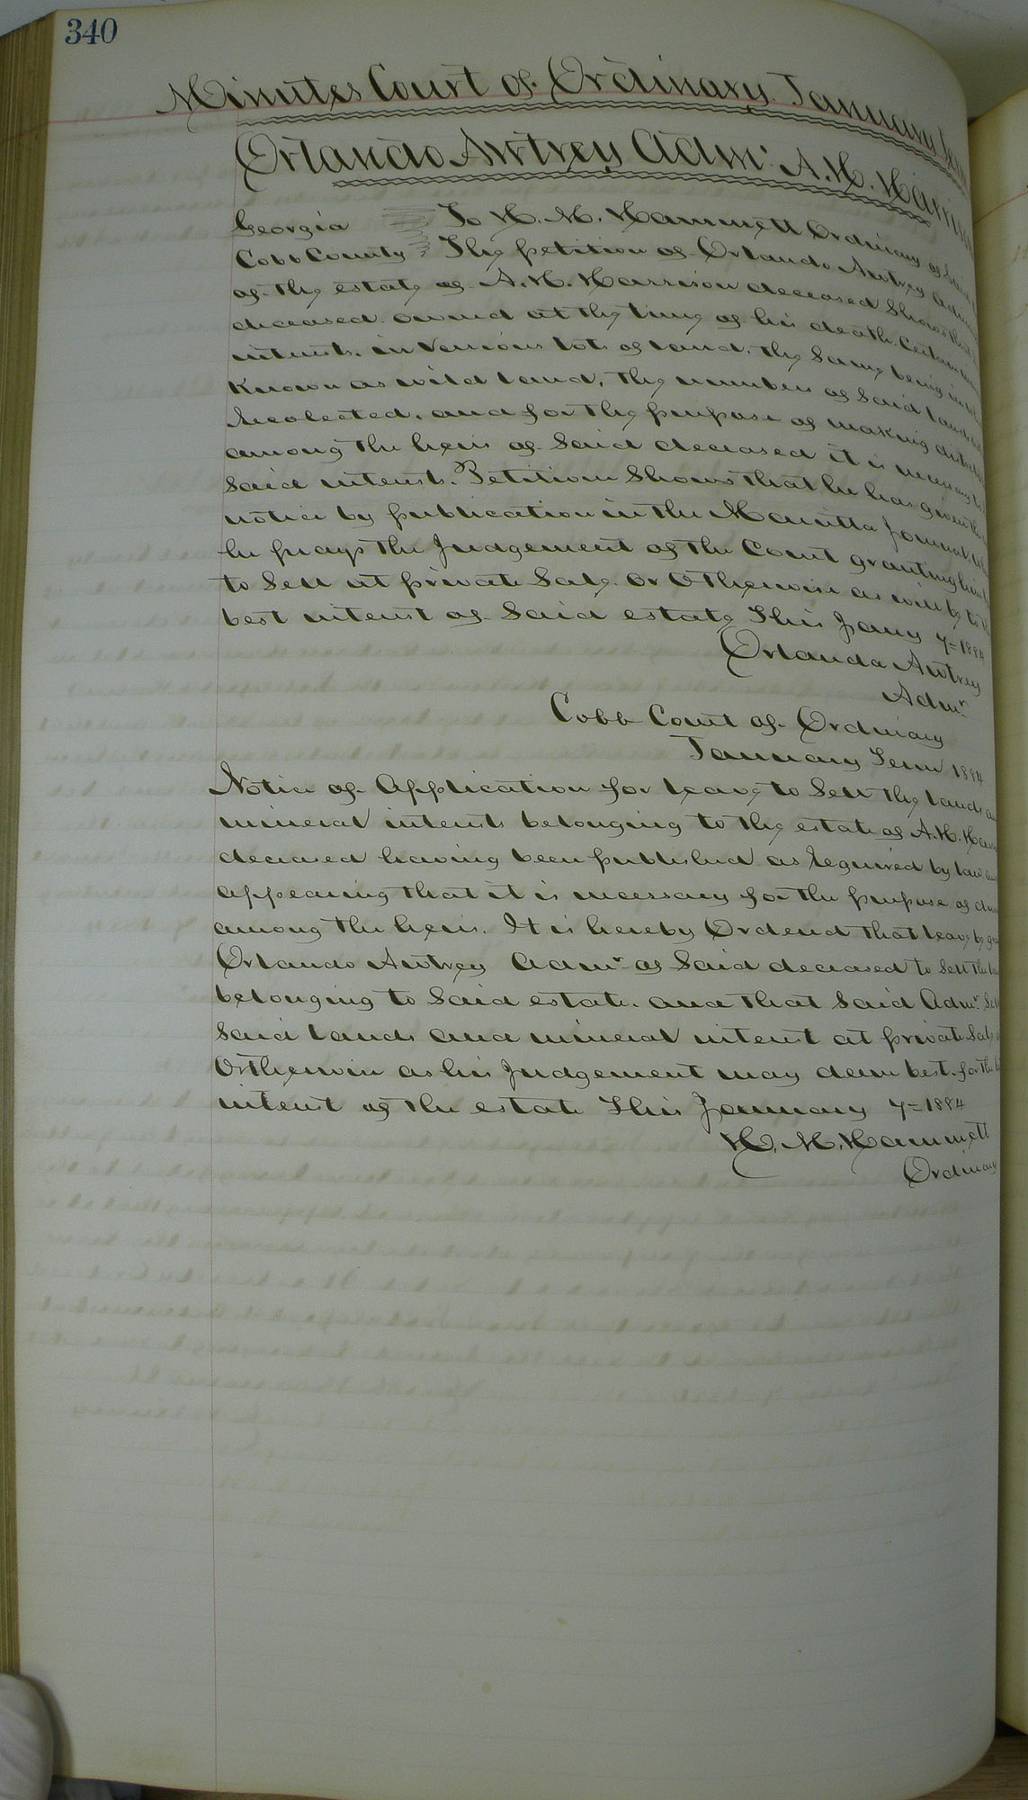 340
Minutes Court of Ordinary January
Orlando Awtrey Admr. A. H. Harrison
Georgia To H. M. Hammett Ordinary of Said
Cobb County The petition of Orlando Awtrey Admr
of the estate of A. H. Harrison deceased Shows that
deceased owned at the time of his death Certain
interests in Various lots of land, the Same being
Known as wild land, the number of Said lands
Neglected, and for the purpose of making
among the heirs of Said deceased it is necessary to
Said interests. Petition Shows that he has given
notice by publication in the Marietta Journal
he prays the Judgement of the Court granting him
to Sell at private Sale or Otherwise as will be to the
best interest of Said estate This Jany 7= 1884
Orlando Awtrey
Admr
Cobb Court of Ordinary
January Term 1884
Notice of Application for leave to Sell the lands
mineral interests belonging to the estate of A. H.
deceased having been published as required by law
appearing that it is necessary for the purpose of
among the heirs. It is hereby Ordered that leave be
Orlando Awtrey Admr of Said deceased to Sell the
belonging to Said estate. and that Said Admr. Sell
Said lands and mineral interest at private Sale
Ortherwise as his Judgement may deem best for the
interest of the estate This January 7= 1884
H. M. Hammett
Ordinary